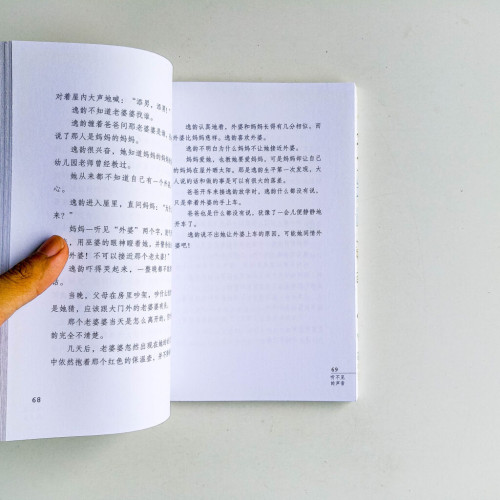 对着屋内大声地喊：“添男，添男！”
逸韵不知道老婆婆找谁。
逸韵缠着爸爸问那老婆婆是谁，
说了那人是妈妈的妈妈。
逸韵很兴奋，她知道妈妈的妈妈
幼儿园老师曾经教过。
她从来都不知道自己有一个外
心。
逸韵进入屋里，直问妈妈：“
来？”
妈妈一听见“外婆”两个字，
用巫婆的眼神瞪着她，并警
外婆！不可以接近那个老太婆！”
逸韵吓得哭起来，一整晚都不
话。
当晚，父母在房里吵架，吵什么
是她猜，应该跟大门外的老婆婆有关
那个老婆婆当天是怎么离开的，
韵完全不清楚。
几天后，老婆婆忽然出现在她的幼
中依然抱着那个红色的保温壶，并
68
逸韵认真地看，外婆和妈妈长得有几分相似。而
外婆比妈妈慈祥。逸韵喜欢外婆。
逸韵不明白为什么妈妈不让她接近外婆。
妈妈爱她，也教她要爱妈妈，可是妈妈却让自己
的妈妈在屋外晒太阳。那是逸韵生平第一次发现，大
人说的话和做的事是可以有很大的落差。
爸爸开车来接逸韵放学时，逸韵什么都没有说，
只是牵着外婆的手上车。
爸爸也是什么都没有说，犹豫了一会儿便静静地
开车了。
逸韵说不出她让外婆上车的原因，可能她同情外
婆吧！
69
听不见
的声音